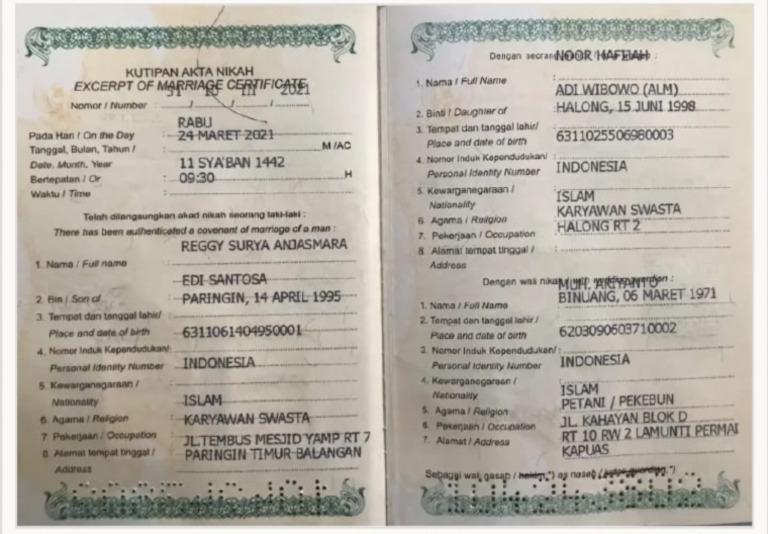 KUTIPAN AKTA NIKAH
EXCERPT OF MARRIAGE CERTIFICATE
Nomor / Number : 51 / 10 / III / 2021
RABU
Pada Hari / On the Day : 24 MARET 2021
Tanggal, Bulan, Tahun / M/AC
Date, Month, Year : 11 SYA'BAN 1442
Bertepatan / Or : 09:30 H
Waktu / Time :
Telah dilangsungkan akad nikah seorang laki-laki :
There has been authenticated a covenant of marriage of a man :
REGGY SURYA ANJASMARA
1. Nama / Full name :
EDI SANTOSA
2. Bin / Son of : PARINGIN, 14 APRIL 1995
3. Tempat dan tanggal lahir/
Place and date of birth : 6311061404950001
4. Nomor Induk Kependudukan/
Personal Identity Number : INDONESIA
5. Kewarganegaraan /
Nationality : ISLAM
6. Agama / Religion : KARYAWAN SWASTA
7. Pekerjaan / Occupation : JL.TEMBUS MESJID YAMP RT 7
8. Alamat tempat tinggal / : PARINGIN TIMUR BALANGAN
Address
Dengan seorang NOOR HAFTIAH :
1. Nama / Full Name : ADI WIBOWO (ALM)
2. Binti / Daughter of : HALONG, 15 JUNI 1998
3. Tempat dan tanggal lahir/ : 6311025506980003
Place and date of birth
4. Nomor Induk Kependudukan/ : INDONESIA
Personal Identity Number
5. Kewarganegaraan / : ISLAM
Nationality
6. Agama / Religion : KARYAWAN SWASTA
7. Pekerjaan / Occupation : HALONG RT 2
8. Alamat tempat tinggal /
Address
Dengan wali nikah / wedding guardian :
MUH. ARIYANTO
1. Nama / Full Name : BINUANG, 06 MARET 1971
2. Tempat dan tanggal lahir /
Place and date of birth : 6203090603710002
3. Nomor Induk Kependudukan/ :
Personal Identity Number : INDONESIA
4. Kewarganegaraan /
Nationality : ISLAM
5. Agama / Religion : PETANI / PEKEBUN
6. Pekerjaan / Occupation : JL. KAHAYAN BLOK D
7. Alamat / Address : RT 10 RW 2 LAMUNTI PERMAI
KAPUAS
Sebagai wali nasab / hakim *) as nasab (